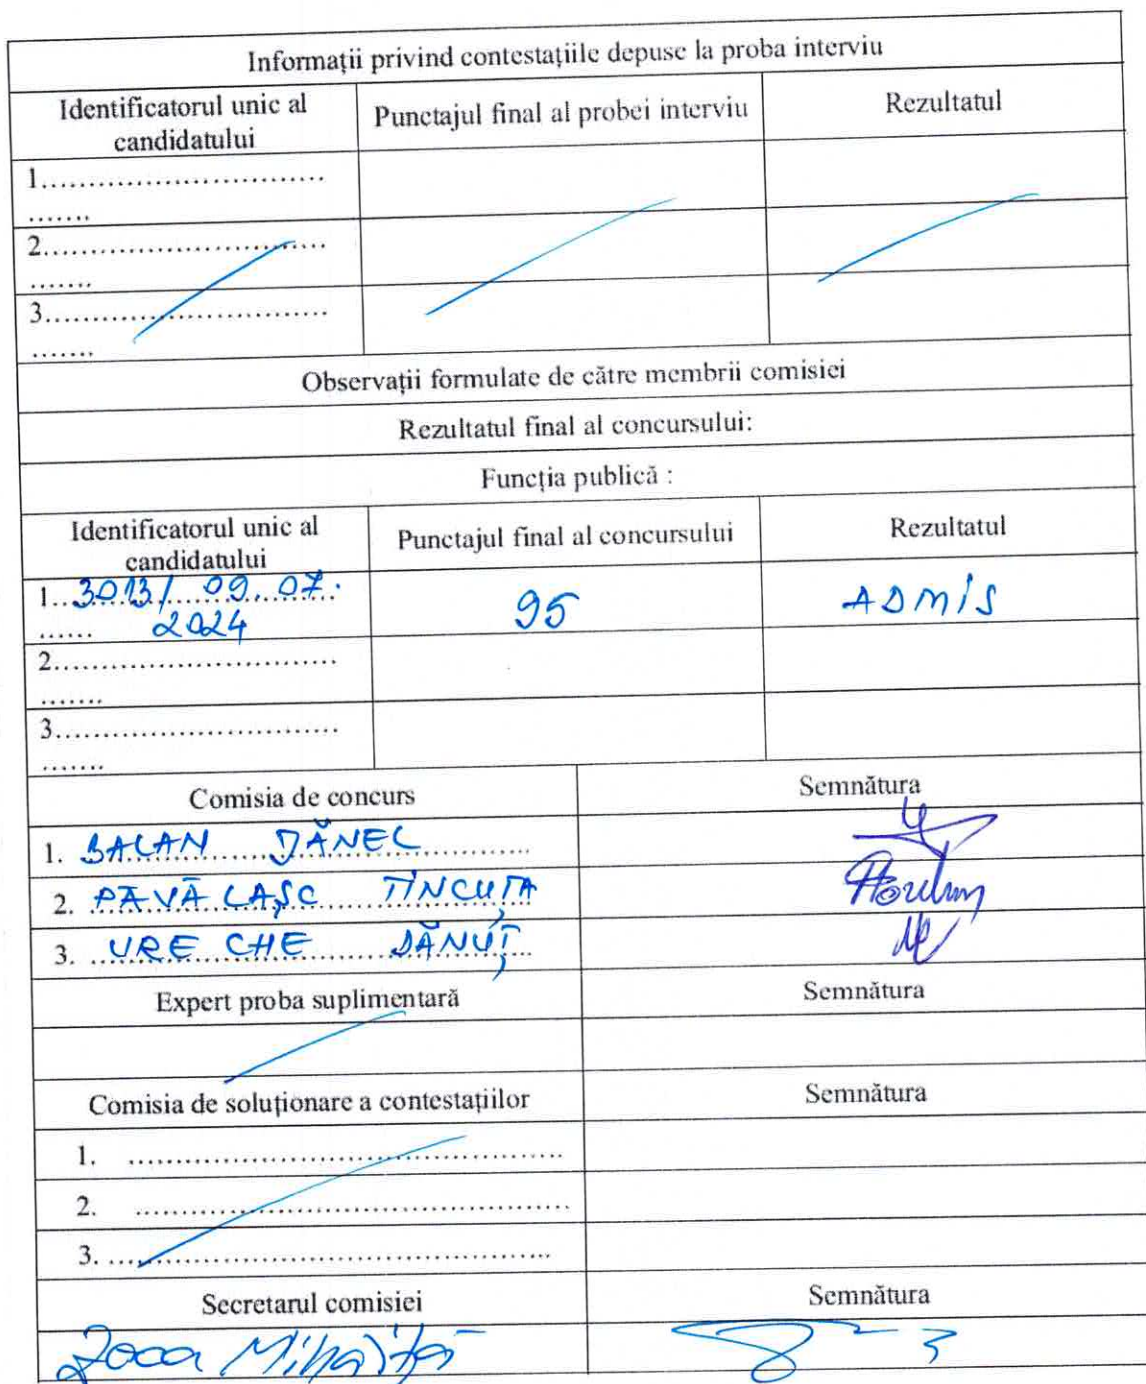 Informații privind contestațiile depuse la proba interviu
Identificatorul unic al candidatului
Punctajul final al probei interviu
Rezultatul
1..............................
.......
2..............................
.......
3..............................
.......
Observații formulate de către membrii comisiei
Rezultatul final al concursului:
Funcția publică :
Identificatorul unic al candidatului
Punctajul final al concursului
Rezultatul
1..3013/ 09.07.
...... 2024
95
ADMIS
2..............................
.......
3..............................
.......
Comisia de concurs
Semnătura
1. BALAN DĂNEL
2. PĂVĂLAȘC TINCUȚA
3. URECHE DĂNUȚ
Expert proba suplimentară
Semnătura
Comisia de soluționare a contestațiilor
Semnătura
1. ..............................................
2. ..............................................
3. ..............................................
Secretarul comisiei
Semnătura
Mihăiță